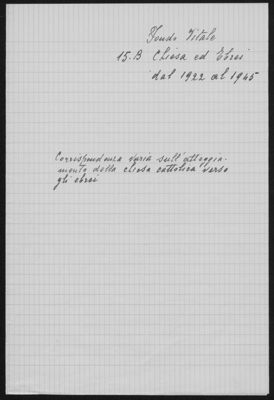 Fondo Vitale
15.B Chiesa ed Ebrei
dal 1922 al 1945
Corrispondenza varia sull'atteggia-
mento della chiesa cattolica verso
gli ebrei